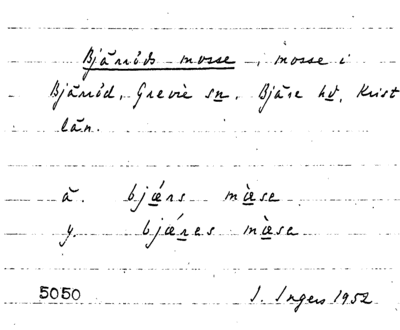 Bjäröds mosse, mosse i
Bjäröd, Grevie sn. Bjäre hd, Krist
län.
ä. bjǽrs mæ̀se
y. bjǽres mæ̀se
5050 I. Ingers 1952